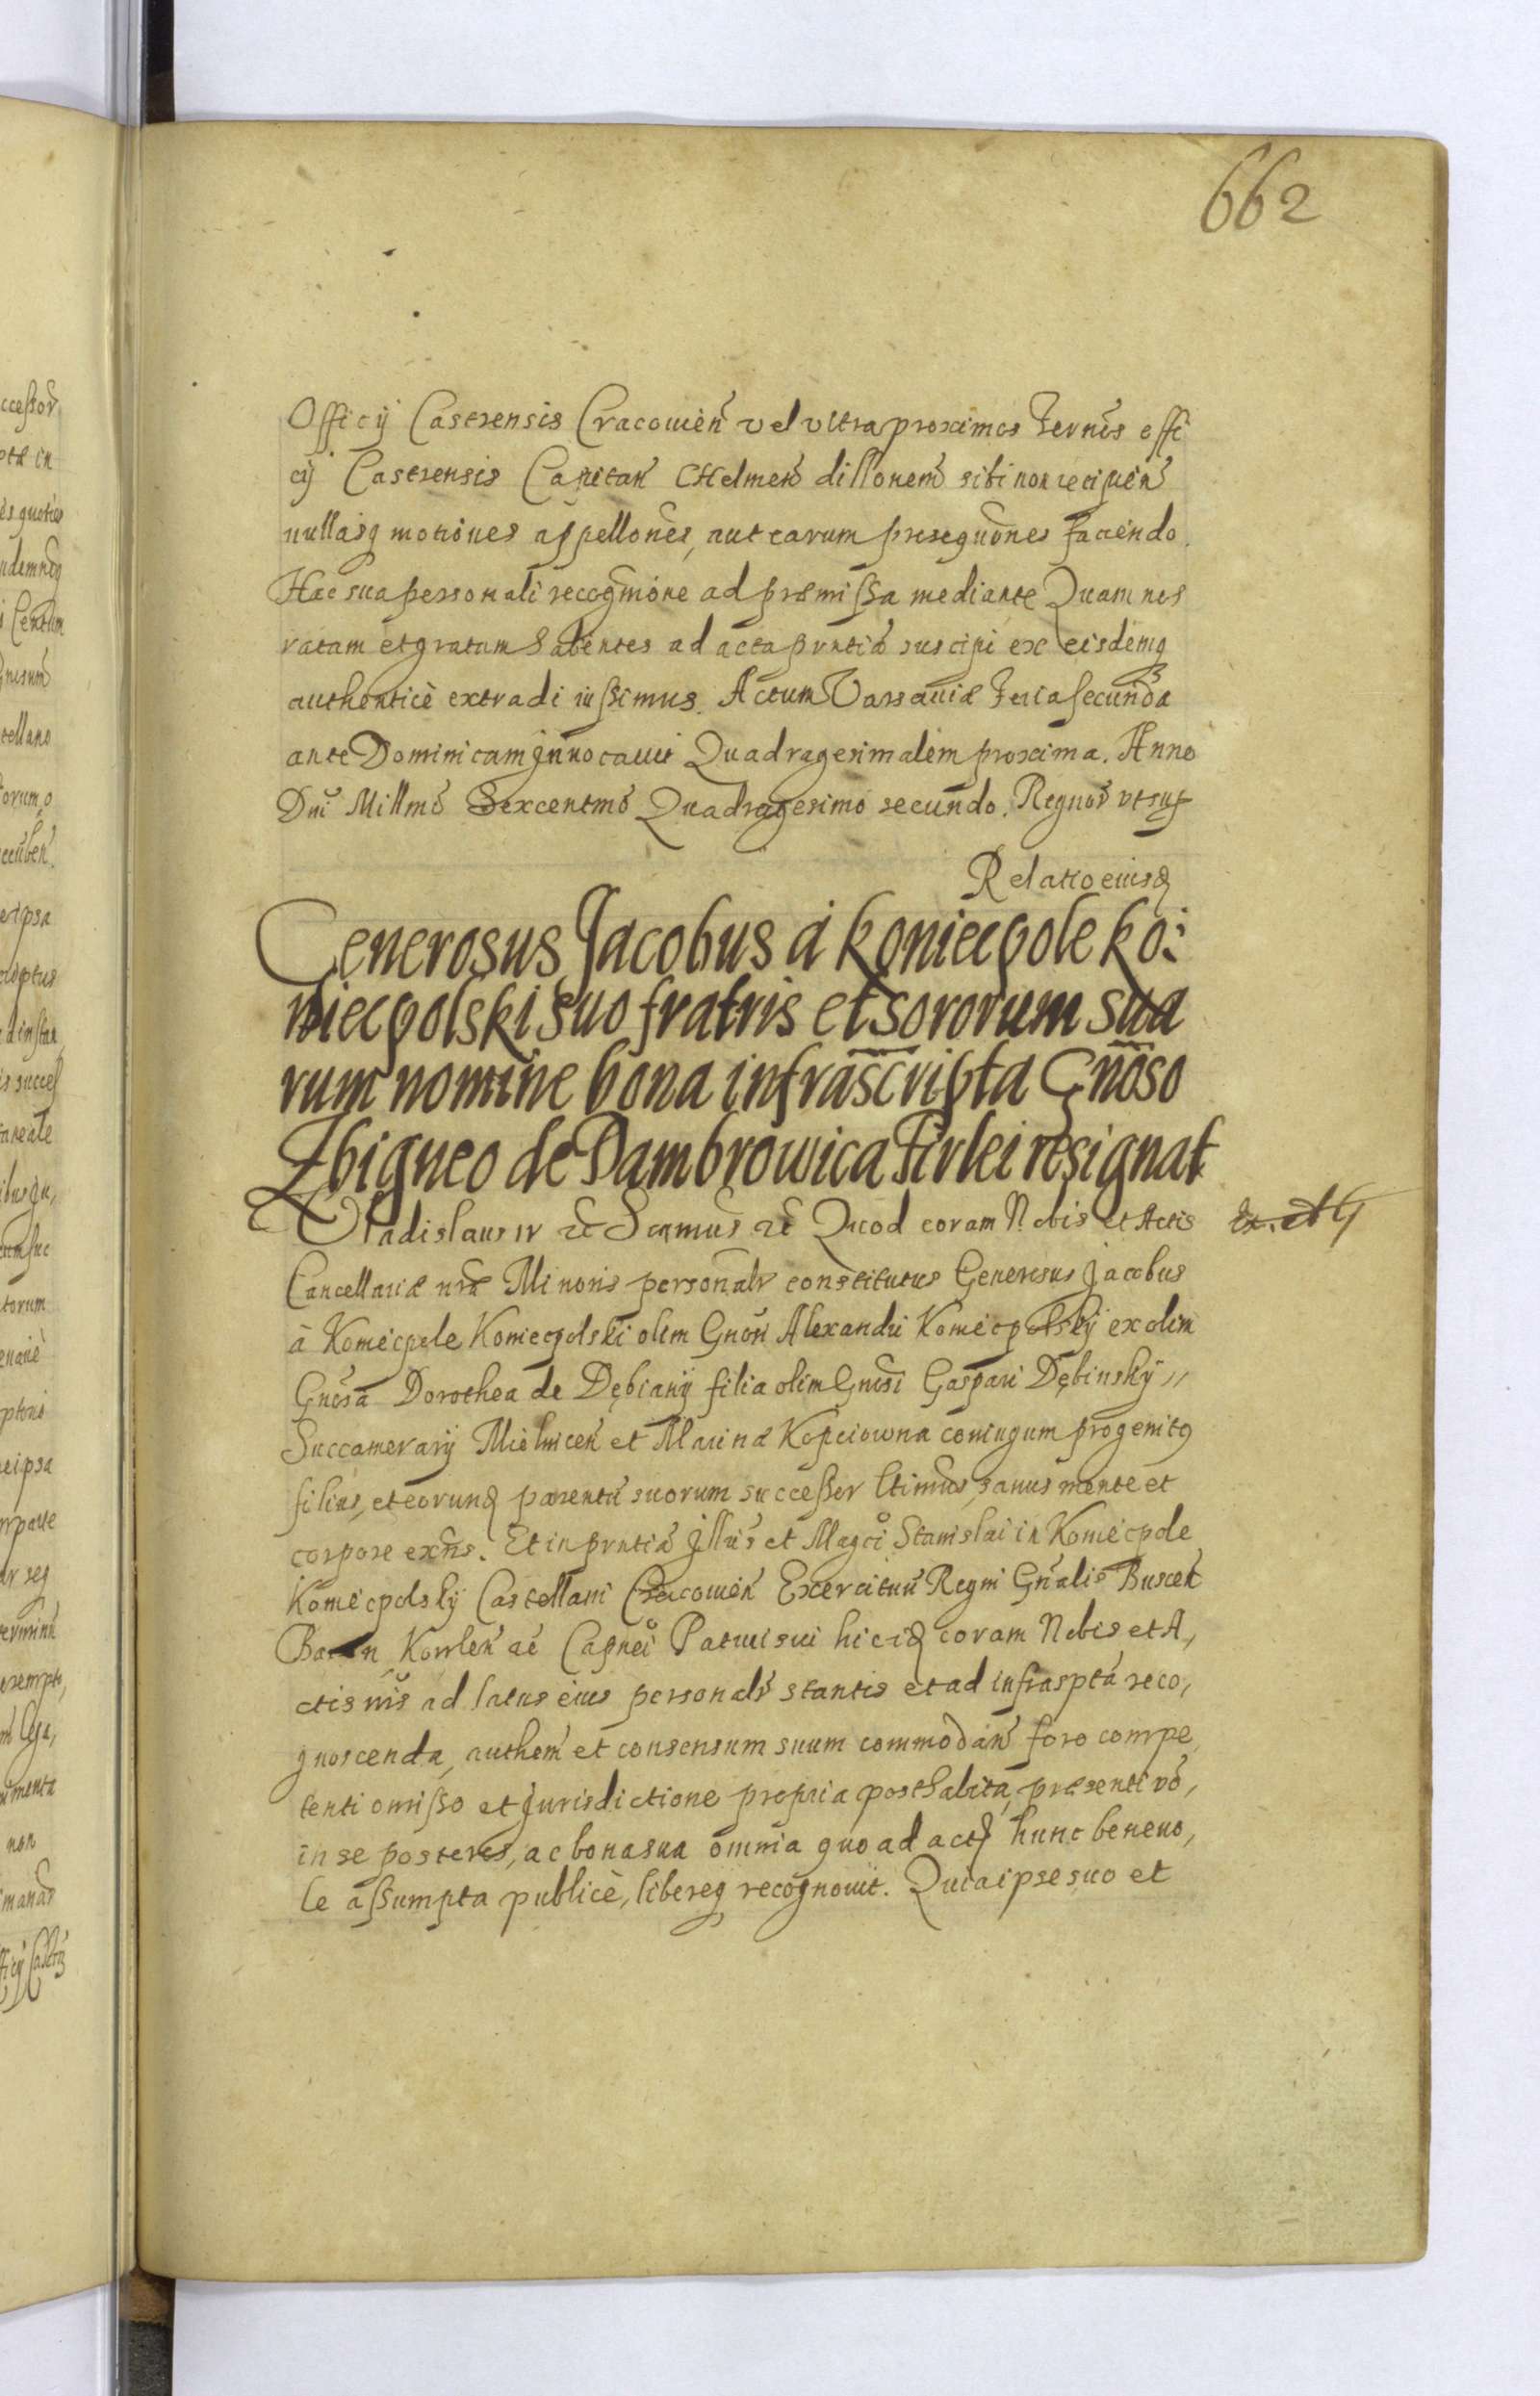 662
Officÿ Castrensis Cracouień vel vltra proximos Termős offi
cÿ Castrensis Capitań Chelmeń dillonem̃ sibi non recipień
nullasq motiones appellones, aut earum prosequőnes faciendo.
Hac sua personali recogmone ad præmissa mediante Quam nos
ratam et gratam habentes ad acta pꝛntia suscipi ex eisdemq
authenticè extradi iussimus. Actum Varsauiæ Feria secunda
ante Dominicam Jnuocauit Quadragesimalem proxima. Anno
Dni Millmo Sexcentmo Quadragesimo secundo. Regnoꝝ vt sup
Relatio eiusd
Generosus Jacobus á Koniecpole Ko:
niecpolski suo fratris et sororum sua
rum nomine bona infrascripta Gnoso
Zbigneo de Dambrowica Firlei resignat
Vladislaus IV &c Sigmus &c Quod coram Nobis et Actis
Cancellariæ nræ Minoris personalr constitutus Generosus Jacobus
à Koniecpole Koniecpolski olim Gnosi Alexandri Koniecpolskÿ ex olim
Gnosa Dorothea de Dębianÿ filia olim Gnosi Gaspari Dębinskÿ
Succamerarÿ Mielnicen et Marinæ Kopciowna coniugum progenitꝰ
filius, et eorund parentũ suorum successor ltimus, sanus mente et
corpore exns. Et in pꝛntia Jllus et Magci Stanislai in Koniecpole
Koniecpolskÿ Castellani Cracouień Exercituũ Regni Gnalis Buscen
Baren Kowlen ac Capnei Patrui sui hic id coram Nobis et A,
ctis nris ad latus eius personalr stantis et ad infrasptá reco,
gnoscenda, authem et consensum suum commodan foro compe,
tenti omisso et Jurisdictione propria posthabita, præsenti vo,
in se posteros, ac bona sua omnia quo ad actũ hunc beneuo,
le assumpta publicè, libereq recognouit. Quia ipse suo et